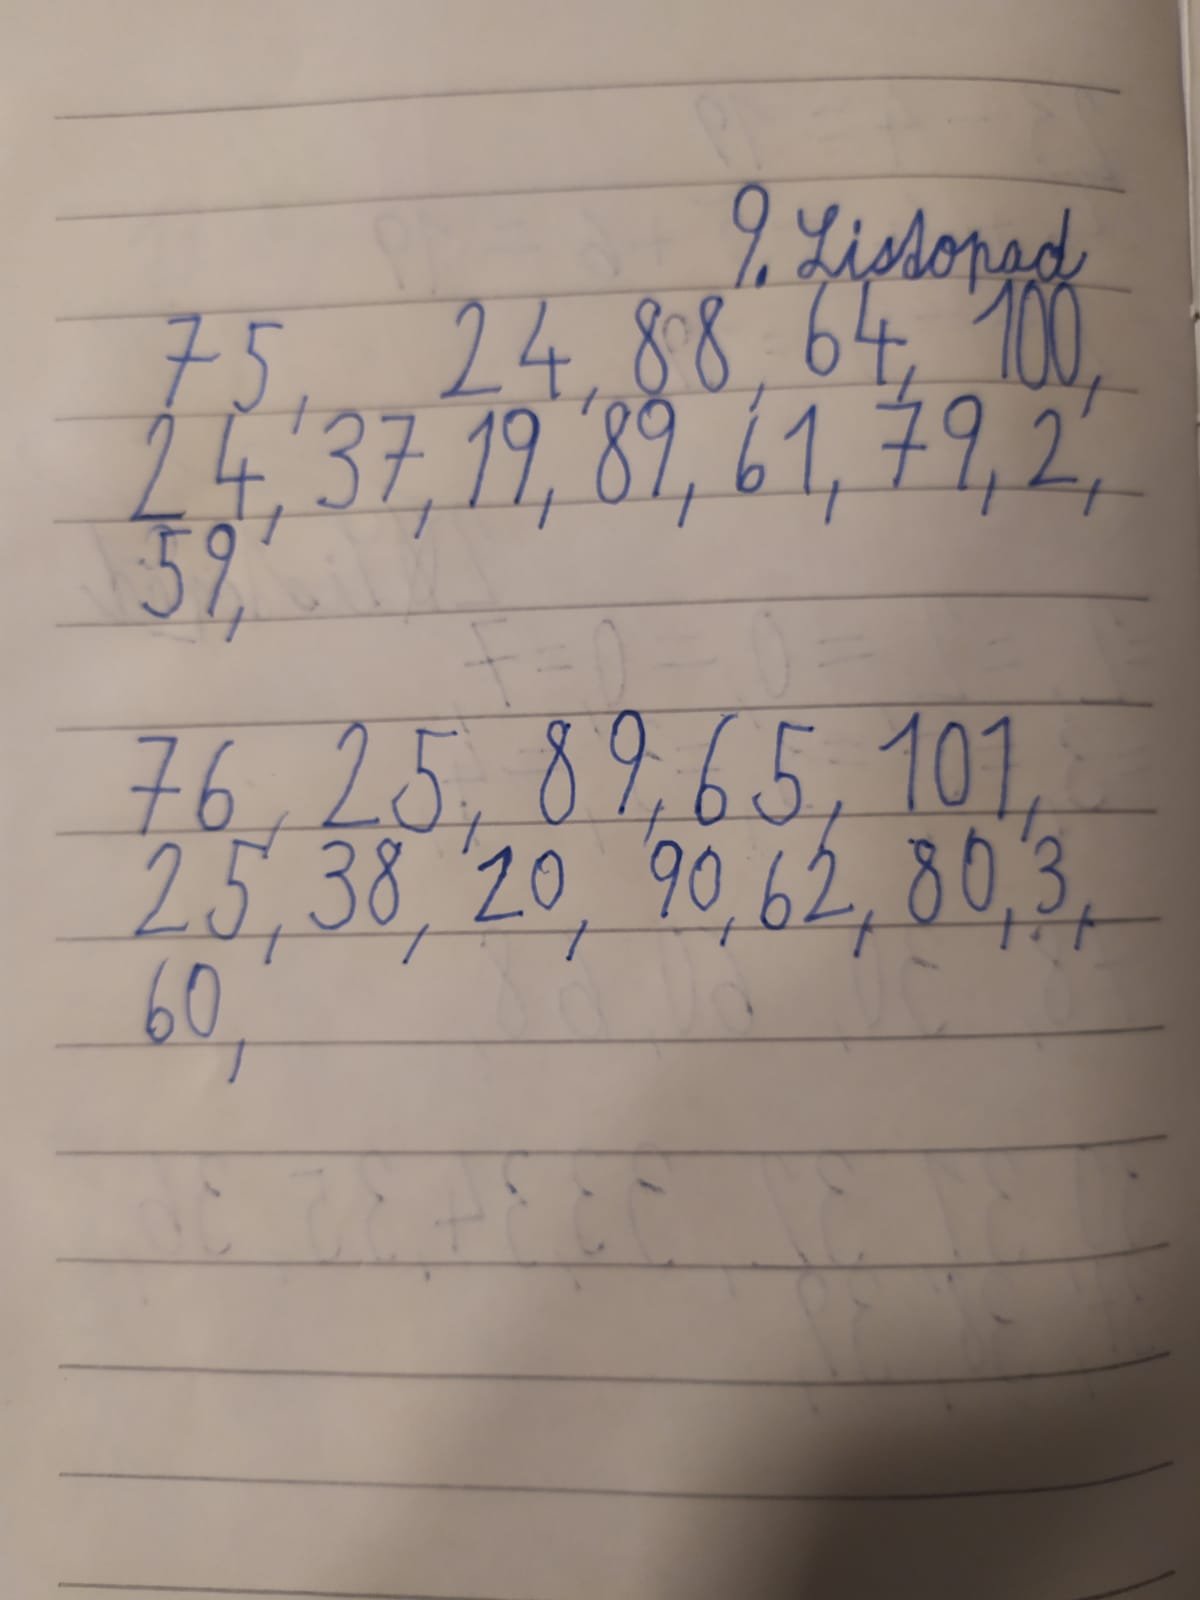 9. Listopad
75, 24, 88, 64, 100,
24, 37, 19, 89, 61, 79, 2,
59,
76, 25, 89, 65, 101,
25, 38, 20, 90, 62, 80, 3,
60,